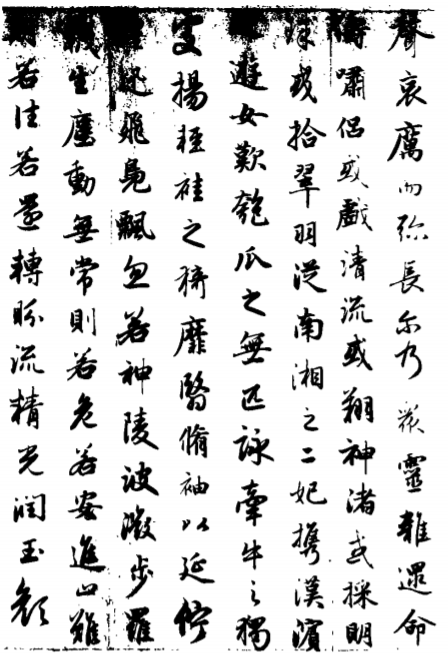 聲哀厲而弥長尓乃衆靈雜遝命
儔嘯侶或戲清流或翔神渚或採明
珠或拾翠羽從南湘之二妃携漢濱
遊女歎匏瓜之無匹詠牽牛之獨
處揚輕袿之猗靡翳脩袖以延佇
迅飛鳧飄忽若神陵波微步羅
襪生塵動無常則若危若安進止難
若往若還轉眄流精光潤玉顏